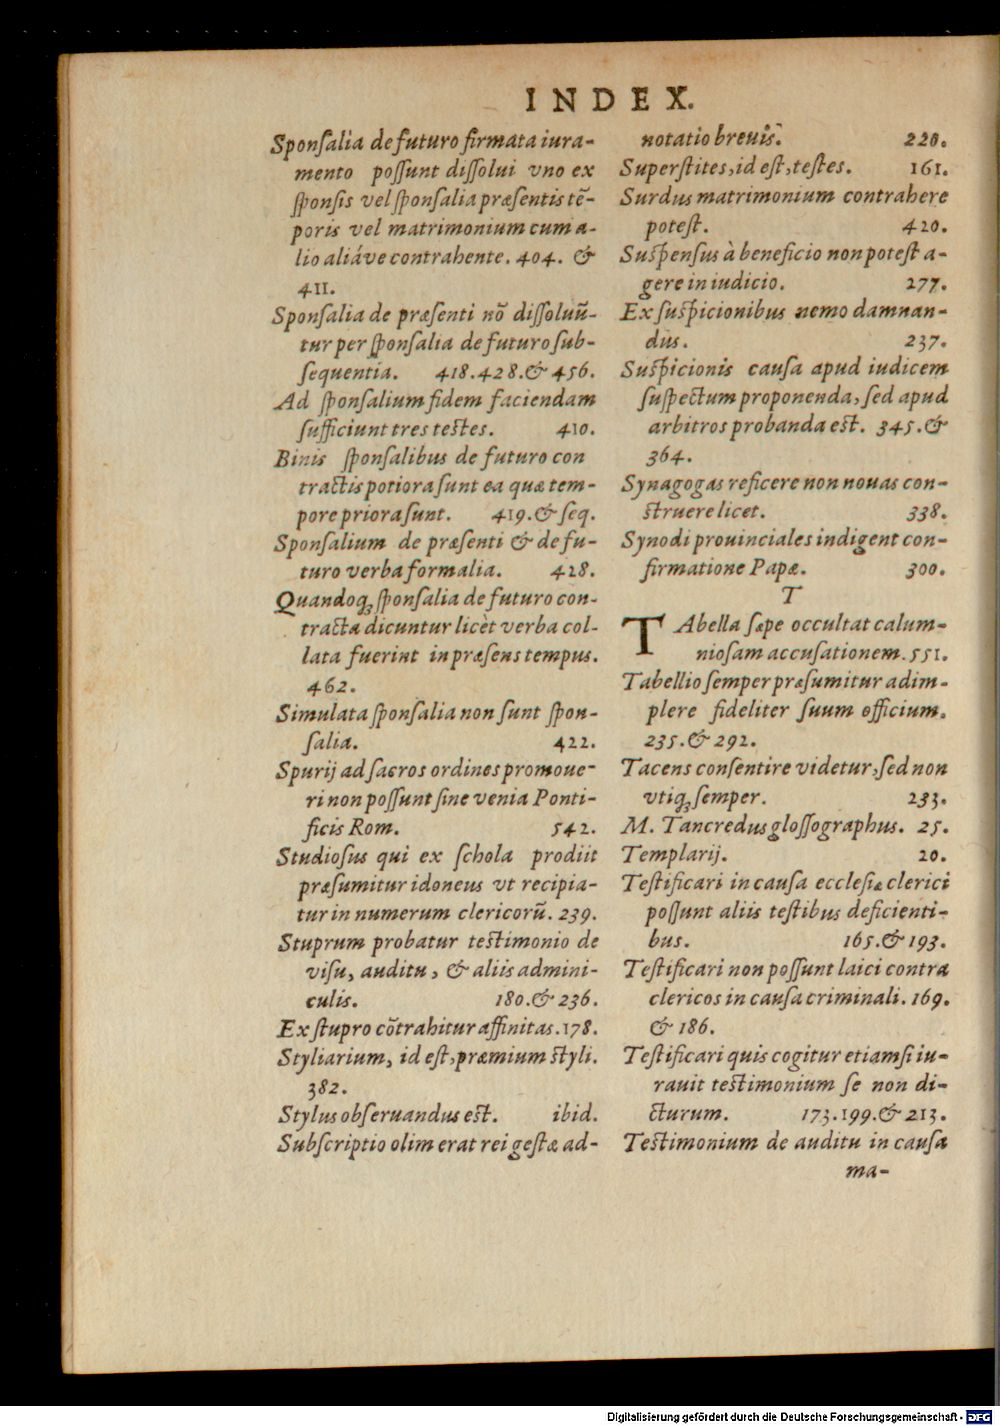 INDEX.
Sponſalia de futuro firmata iura-
mento poſſunt diſſolui vno ex
ſponſis vel ſponſalia præſentis tẽ-
poris vel matrimonium cum a-
lio aliáve contrahente. 404. &
411.
Sponſalia de præſenti nõ diſſoluũ-
tur per ſponſalia de futuro ſub-
ſequentia. 418. 428. & 456.
Ad ſponſalium fidem faciendam
ſufficiunt tres teſtes. 410.
Binis ſponſalibus de futuro con
tractis potiora ſunt ea quæ tem-
pore priora ſunt. 419. & ſeq.
Sponſalium de præſenti & de fu-
turo verba formalia. 428.
Quandoq; ſponſalia de futuro con-
tracta dicuntur licèt verba col-
lata fuerint in præſens tempus.
462.
Simulata ſponſalia non ſunt ſpon-
ſalia. 422.
Spurij ad ſacros ordines promoue-
ri non poſſunt ſine venia Ponti-
ficis Rom. 542.
Studioſus qui ex ſchola prodiit
præſumitur idoneus vt recipia-
tur in numerum clericorũ. 239.
Stuprum probatur teſtimonio de
viſu, auditu, & aliis admini-
culis. 180. & 236.
Ex ſtupro cõtrahitur affinitas. 178.
Styliarium, id eſt, præmium ſtyli.
382.
Stylus obſeruandus eſt. ibid.
Subſcriptio olim erat rei geſtæ ad-
notatio breuis. 220.
Superſtites, id eſt, teſtes. 161.
Surdus matrimonium contrahere
poteſt. 420.
Suſpenſus à beneficio non poteſt a-
gere in iudicio. 277.
Ex ſuſpicionibus nemo damnan-
dus. 237.
Suſpicionis cauſa apud iudicem
ſuſpectum proponenda, ſed apud
arbitros probanda eſt. 345. &
364.
Synagogas reficere non nouas con-
ſtruere licet. 338.
Synodi prouinciales indigent con-
firmatione Papæ. 300.
T
TAbella ſæpe occultat calum-
nioſam accuſationem. 551.
Tabellio ſemper præſumitur adim-
plere fideliter ſuum officium.
235. & 292.
Tacens conſentire videtur, ſed non
vtiq; ſemper. 233.
M. Tancredus gloſſographus. 25.
Templarij. 20.
Teſtificari in cauſa eccleſiæ clerici
poſſunt aliis teſtibus deficienti-
bus. 165. & 193.
Teſtificari non poſſunt laici contra
clericos in cauſa criminali. 169.
& 186.
Teſtificari quis cogitur etiamſi iu-
rauit teſtimonium ſe non di-
cturum. 173. 199. & 213.
Teſtimonium de auditu in cauſa
ma-
Digitalisierung gefördert durch die Deutsche Forschungsgemeinschaft - DFG